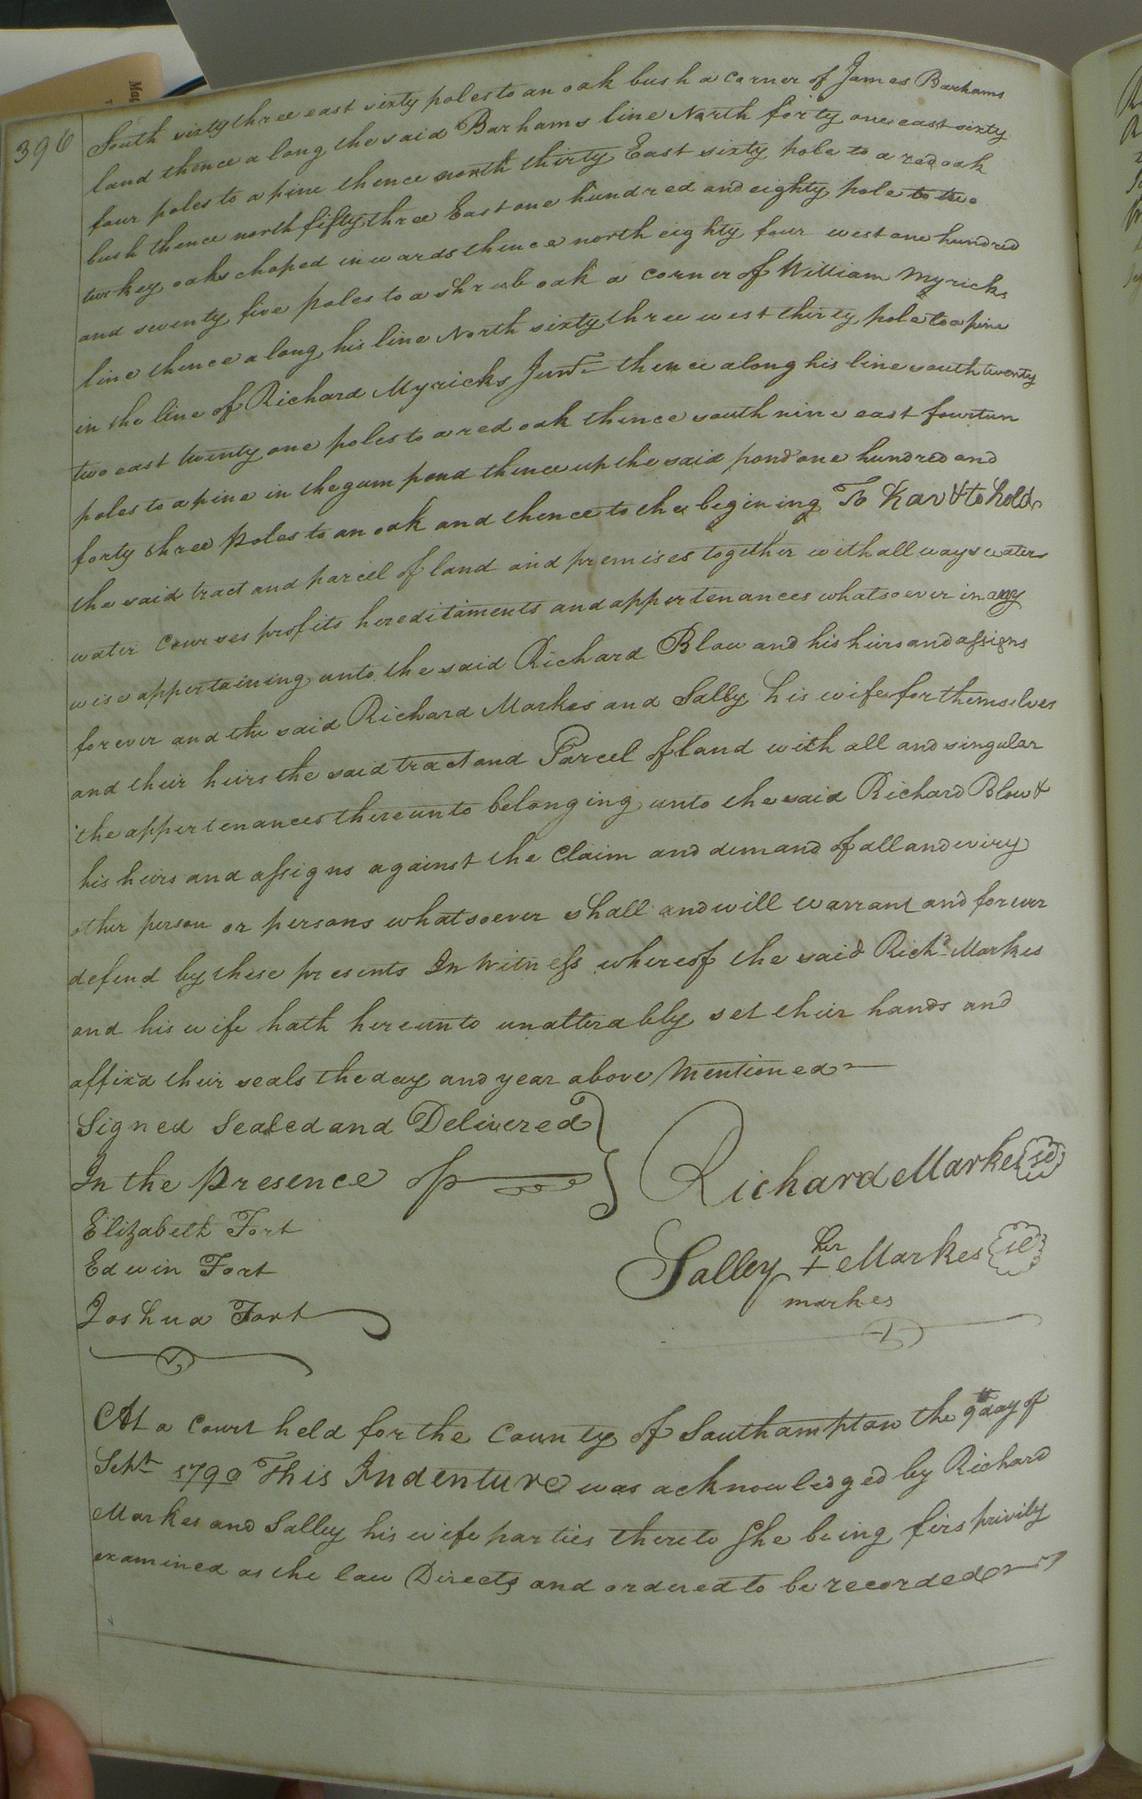 396
South sixty three east sixty poles to an oak bush a corner of James Barhams
land thence along the said Barhams line North forty one east sixty
four poles to a pine thence north thirty East sixty pole to a red oak
bush thence north fifty three East one hundred and eighty pole to two
turkey oaks choped inwards thence north eighty four west one hundred
and seventy five poles to a shrub oak a corner of William Myricks
line thence along his line North sixty three west thirty pole to a pine
in the line of Richard Myricks Junr thence along his line south twenty
two east twenty one poles to a red oak thence south nine east fourteen
poles to a pine in the gum pond thence up the said pond one hundred and
forty three poles to an oak and thence to the begining To Hav & to hold
the said tract and parcel of land and premises together with all ways waters
water courses profits hereditaments and appertenances whatsoever in any
wise appertaining unto the said Richard Blow and his heirs and assigns
forever and the said Richard Markes and Salley his wife for themselves
and their heirs the said tract and Parcel of land with all and singular
the appertenances thereunto belonging unto the said Richard Blow &
his heirs and assigns against the Claim and demand of all and every
other person or persons whatsoever shall and will warrant and forever
defend by these presents In Witness whereof the said Richd Markes
and his wife hath hereunto unalterably set their hands and
affixd their seals the day and year above Mentioned
Signed Sealed and Delivered
In the Presence of
Richard Markes Sd
Elizabeth Fort
Edwin Fort
Joshua Fort
her
Salley + Markes Sd
markes
At a Court held for the County of Southampton the 9th day of
Septr 1790 This Indenture was acknowledged by Richard
Markes and Salley his wife parties thereto She being firs privily
examined as the law Directs and ordered to be recorded